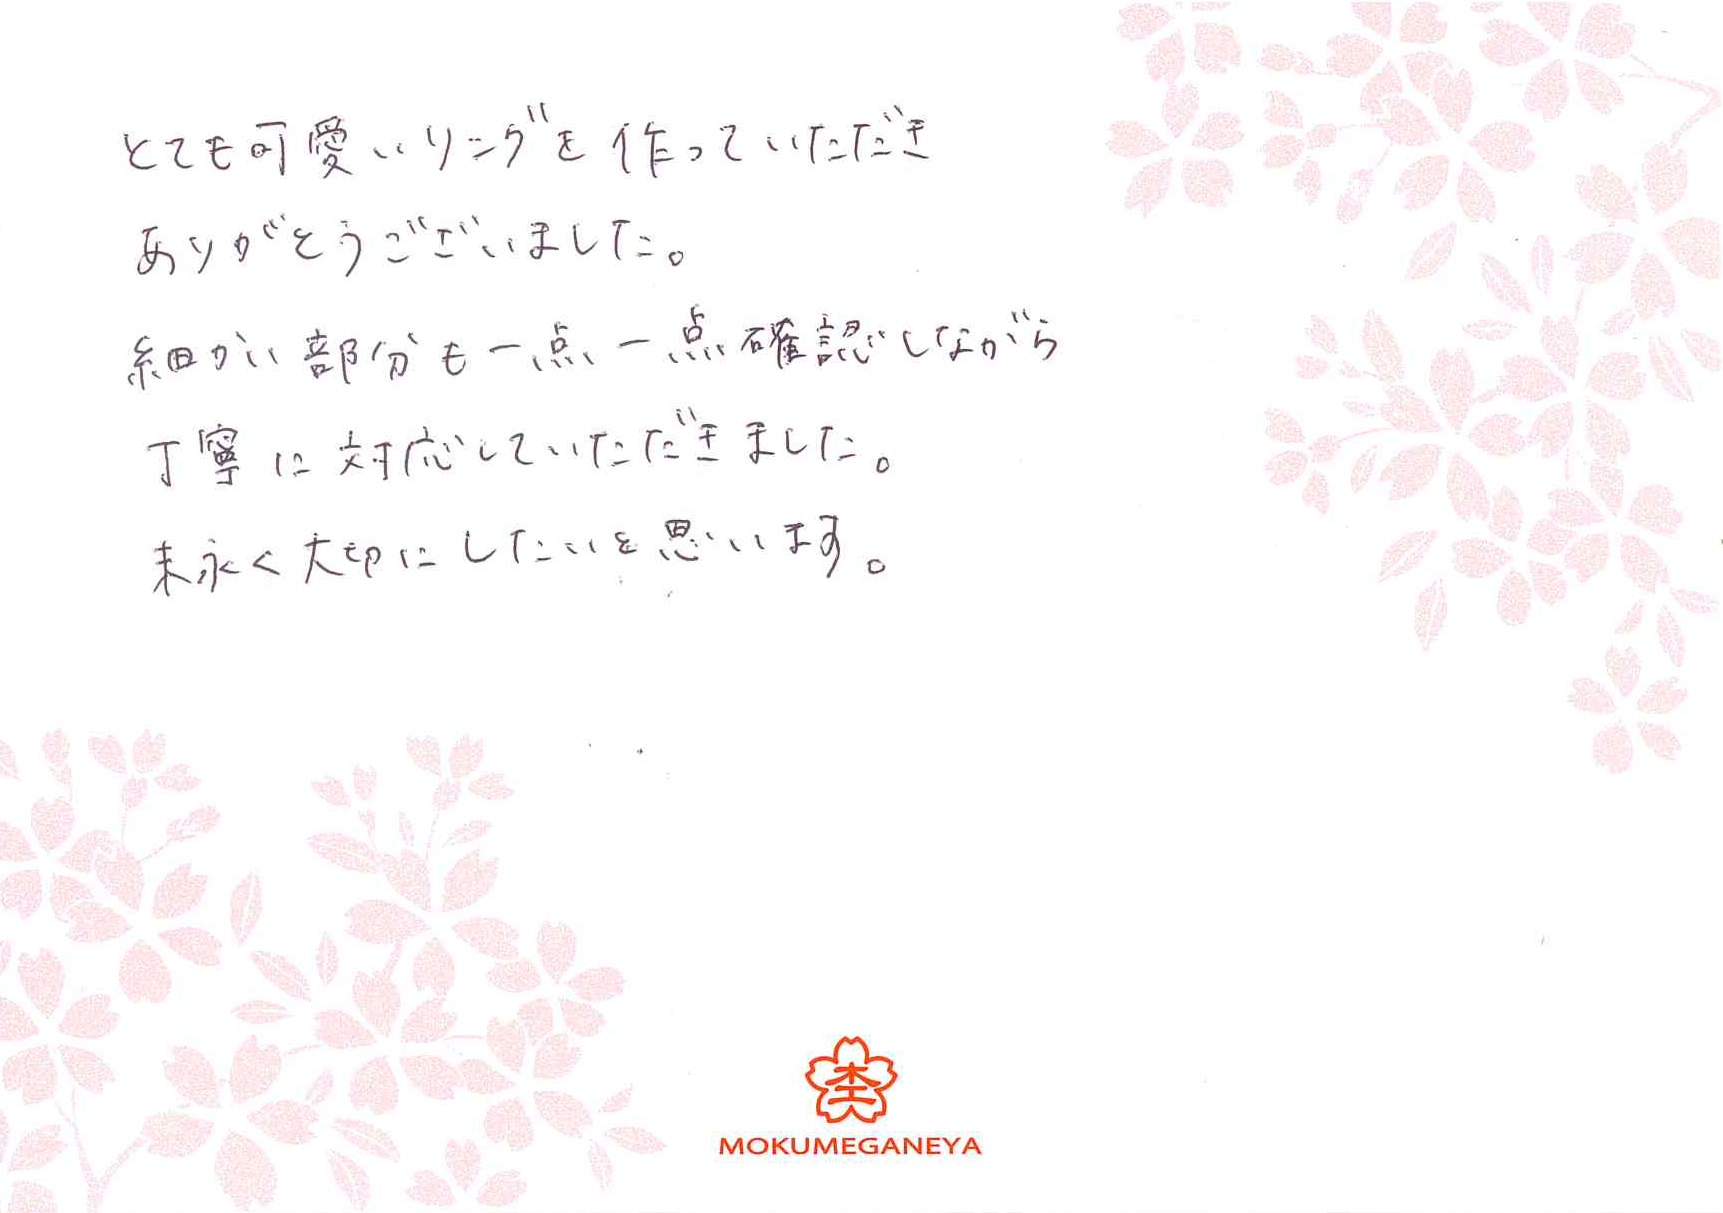 とても可愛いリングを作っていただき
ありがとうございました。
細かい部分も一点一点確認しながら
丁寧に対応していただきました。
末永く大切にしたいと思います。
杢
MOKUMEGANEYA